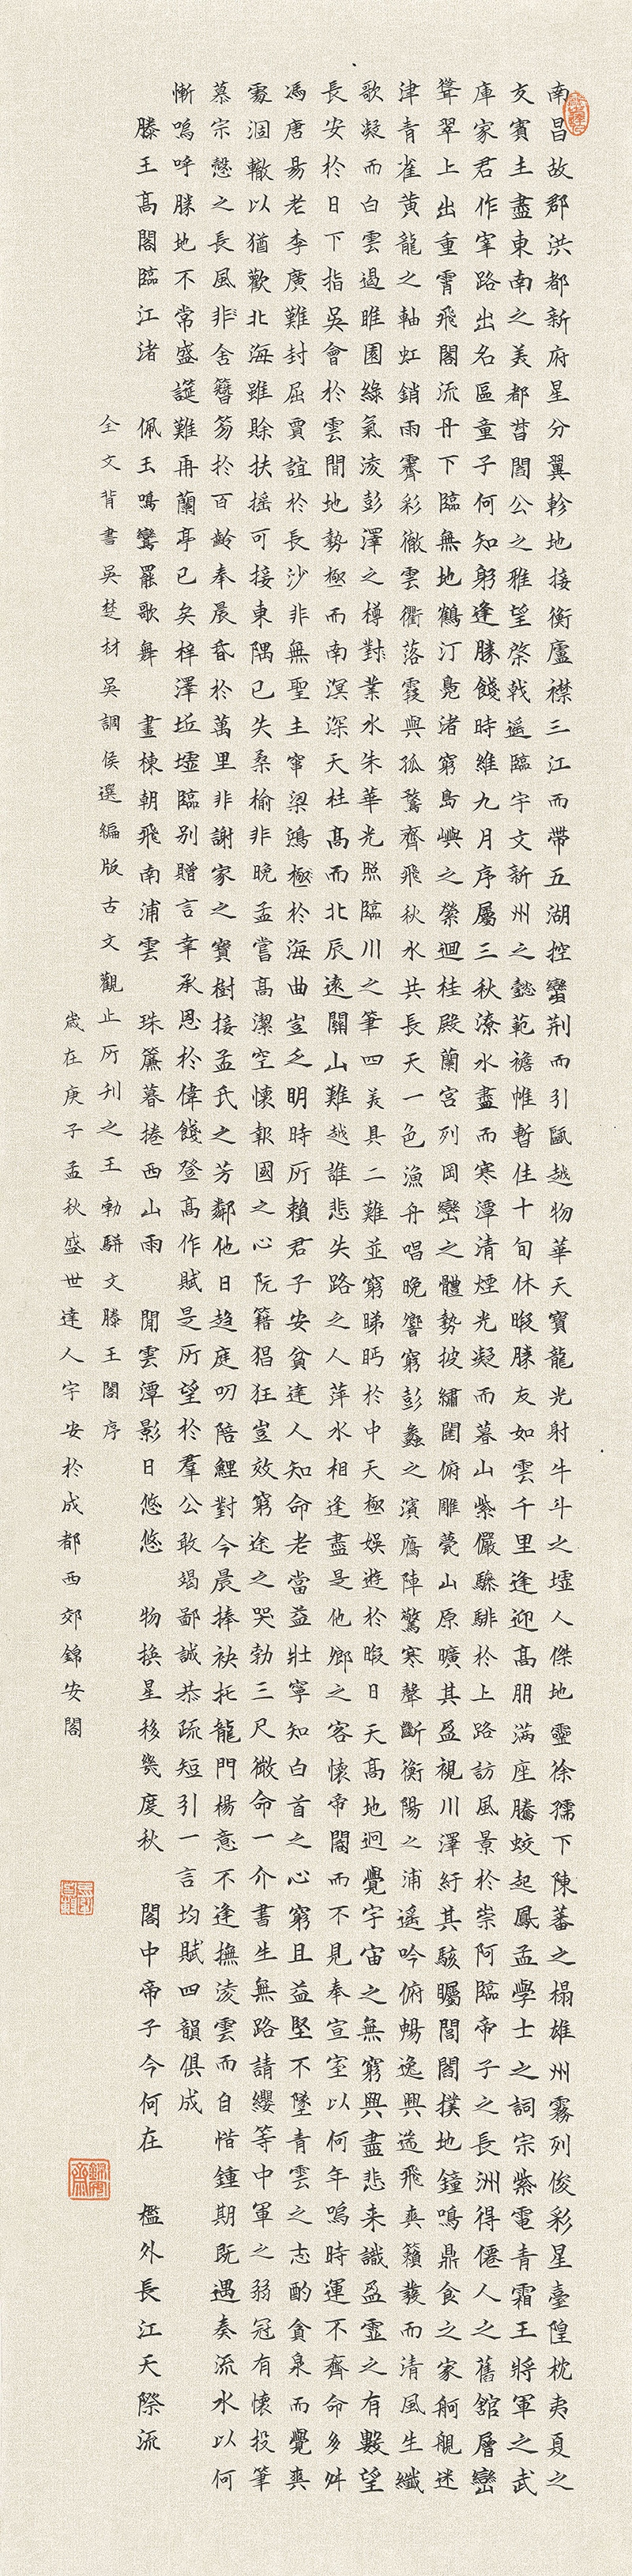 南昌故郡洪都新府星分翼軫地接衡廬襟三江而帶五湖控蠻荊而引甌越物華天寶龍光射牛斗之墟人傑地靈徐孺下陳蕃之榻雄州霧列俊彩星臺隍枕夷夏之
交賓主盡東南之美都督閻公之雅望棨戟遙臨宇文新州之懿範襜帷暫住十旬休暇勝友如雲千里逢迎高朋滿座騰蛟起鳳孟學士之詞宗紫電青霜王將軍之武
庫家君作宰路出名區童子何知躬逢勝餞時維九月序屬三秋潦水盡而寒潭清煙光凝而暮山紫儼驂騑於上路訪風景於崇阿臨帝子之長洲得僊人之舊館層巒
聳翠上出重霄飛閣流丹下臨無地鶴汀鳧渚窮島嶼之縈迴桂殿蘭宮列岡巒之體勢披繡闥俯雕甍山原曠其盈視川澤紆其駭矚閭閻撲地鐘鳴鼎食之家舸艦迷
津青雀黃龍之軸虹銷雨霽彩徹雲衢落霞與孤鶩齊飛秋水共長天一色漁舟唱晚響窮彭蠡之濱鴈陣驚寒聲斷衡陽之浦遙吟俯暢逸興遄飛爽籟發而清風生纖
歌凝而白雲遏睢園綠氣淩彭澤之樽對業水朱華光照臨川之筆四美具二難並窮睇眄於中天極娛遊於暇日天高地迥覺宇宙之無窮興盡悲来識盈虛之有數望
長安於日下指吳會於雲間地勢極而南溟深天柱高而北辰遠關山難越誰悲失路之人萍水相逢盡是他鄉之客懷帝閽而不見奉宣室以何年嗚時運不齊命多舛
馮唐易老李廣難封屈賈誼於長沙非無聖主竄梁鴻極於海曲豈乏明時所賴君子安貧達人知命老當益壯寧知白首之心窮且益堅不墜青雲之志酌貪泉而覺爽
處涸轍以猶歡北海雖賒扶搖可接東隅已失桑榆非晚孟嘗高潔空懷報國之心阮籍猖狂豈效窮途之哭勃三尺微命一介書生無路請纓等中軍之弱冠有懷投筆
慕宗慤之長風非舍簪笏於百齡奉晨昏於萬里非謝家之寶樹接孟氏之芳鄰他日趨庭叨陪鯉對今晨捧袂托龍門楊意不逢撫淩雲而自惜鍾期既遇奏流水以何
慚嗚呼勝地不常盛筵難再蘭亭已矣梓澤坵墟臨別贈言幸承恩於偉餞登高作賦是所望於羣公敢竭鄙誠恭疏短引一言均賦四韻俱成
滕王高閣臨江渚 佩玉鳴鸞罷歌舞 畫棟朝飛南浦雲 珠簾暮捲西山雨 閒雲潭影日悠悠 物換星移幾度秋 閣中帝子今何在 檻外長江天際流
全文背書吳楚材吳調侯選編版古文觀止所刊之王勃駢文滕王閣序
歲在庚子孟秋盛世達人宇安於成都西郊錦安閣